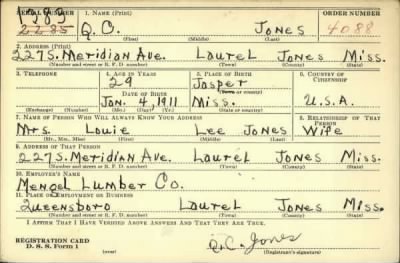 SERIAL NUMBER 1. NAME (Print) ORDER NUMBER
2285 Q. C. Jones 4088
(First) (Middle) (Last)
2. ADDRESS (Print)
227 S. Meridian Ave. Laurel Jones Miss.
(Number and street or R. F. D. number) (Town) (County) (State)
3. TELEPHONE 4. AGE IN YEARS 5. PLACE OF BIRTH 6. COUNTRY OF CITIZENSHIP
29 Jasper
DATE OF BIRTH (Town or county)
Jan. 4, 1911 Miss. U.S.A.
(Exchange) (Number) (Mo.) (Day) (Yr.) (State or country)
7. NAME OF PERSON WHO WILL ALWAYS KNOW YOUR ADDRESS 8. RELATIONSHIP OF THAT PERSON
Mrs. Louie Lee Jones Wife
(Mr., Mrs., Miss) (First) (Middle) (Last)
9. ADDRESS OF THAT PERSON
227 S. Meridian Ave. Laurel Jones Miss.
(Number and street or R. F. D. number) (Town) (County) (State)
10. EMPLOYER'S NAME
Mengel Lumber Co.
11. PLACE OF EMPLOYMENT OR BUSINESS
Queensboro Laurel Jones Miss.
(Number and street or R. F. D. number) (Town) (County) (State)
I AFFIRM THAT I HAVE VERIFIED ABOVE ANSWERS AND THAT THEY ARE TRUE.
REGISTRATION CARD
D. S. S. Form 1 Q. C. Jones
(Registrant's signature)